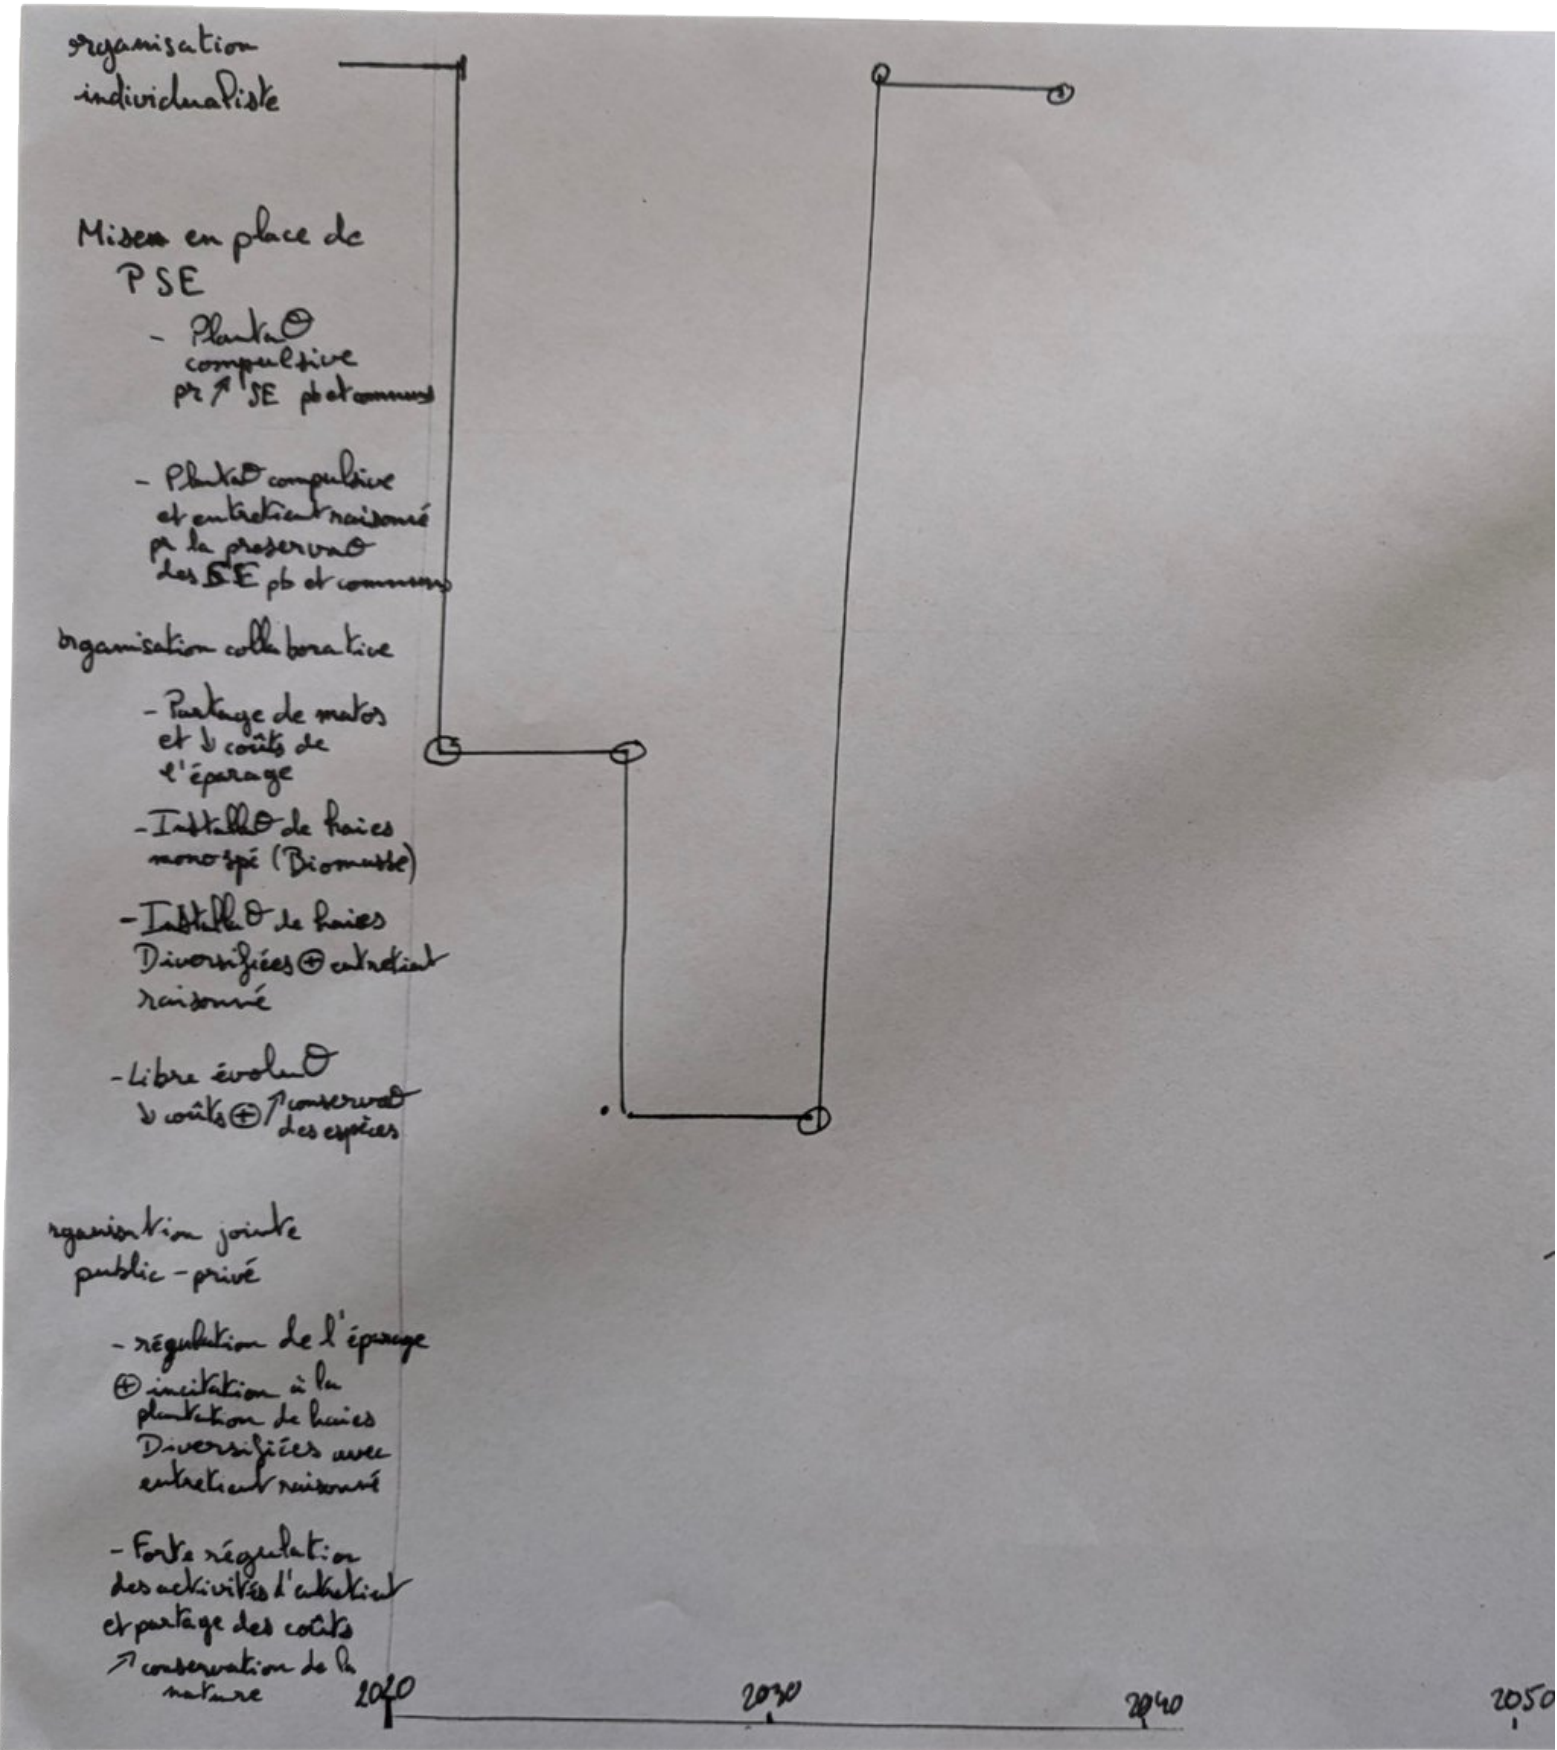 organisation
individualiste
Mise en place de
PSE
- Plantaꝋ
compulsive
pr ↗ SE pb et communs
- Plantaꝋ compulsive
et entretient raisonné
pr la preservaꝋ
des SE pb et communs
organisation collaborative
- Partage de matos
et ↘ coûts de
l'éparage
- Installaꝋ de haies
monospé (Biomasse)
- Installaꝋ de haies
Diversifiées ⊕ entretient
raisonné
- Libre évoluꝋ
↘ coûts ⊕ ↗ conservaꝋ
des espèces
rganisation jointe
public - privé
- régulation de l'éparage
⊕ incitation à la
plantation de haies
Diversifiées avec
entretient raisonné
- Forte régulation
des activités d'entretient
et partage des coûts
↗ conservation de la
nature
2020 2030 2040 2050